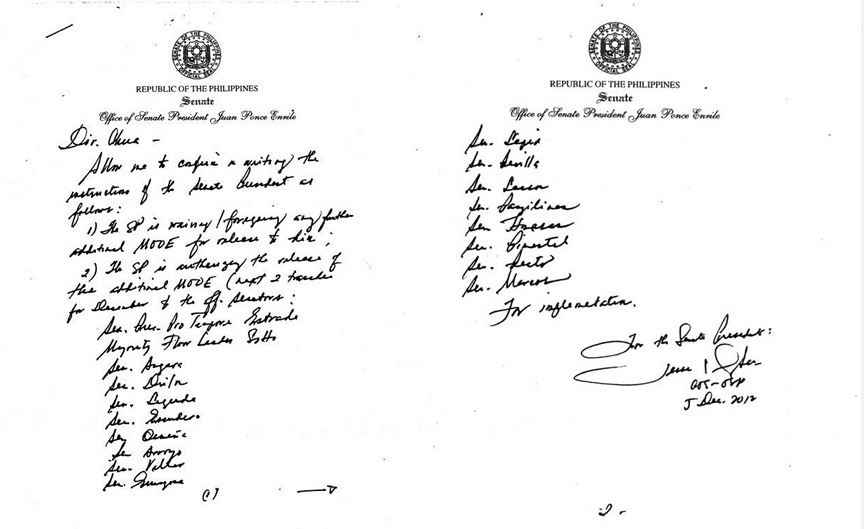 SENATE OF THE PHILIPPINES
OFFICIAL SEAL
REPUBLIC OF THE PHILIPPINES
Senate
Office of Senate President Juan Ponce Enrile
Dir. Chua -
Allow me to confirm in writing the
instructions of the Senate President as
follows:
1) The SP is waiving / foregoing any further
additional MOOE for release to him;
2) The SP is authorizing the release of
the additional MOOE (next 2 tranches
for December to the ff. senators:
Sen. Pres. Pro Tempore Estrada
Majority Floor Leader Sotto
Sen. Angara
Sen. Drilon
Sen. Legarda
Sen. Escudero
Sen. Osmeña
Sen. Arroyo
Sen. Villar
Sen. Guingona
(1)
SENATE OF THE PHILIPPINES
OFFICIAL SEAL
REPUBLIC OF THE PHILIPPINES
Senate
Office of Senate President Juan Ponce Enrile
Sen. Lapid
Sen. Revilla
Sen. Lacson
Sen. Pangilinan
Sen. Honasan
Sen. Pimentel
Sen. Recto
Sen. Marcos
For implementation.
For the Senate President:
5 Dec. 2012
-2-